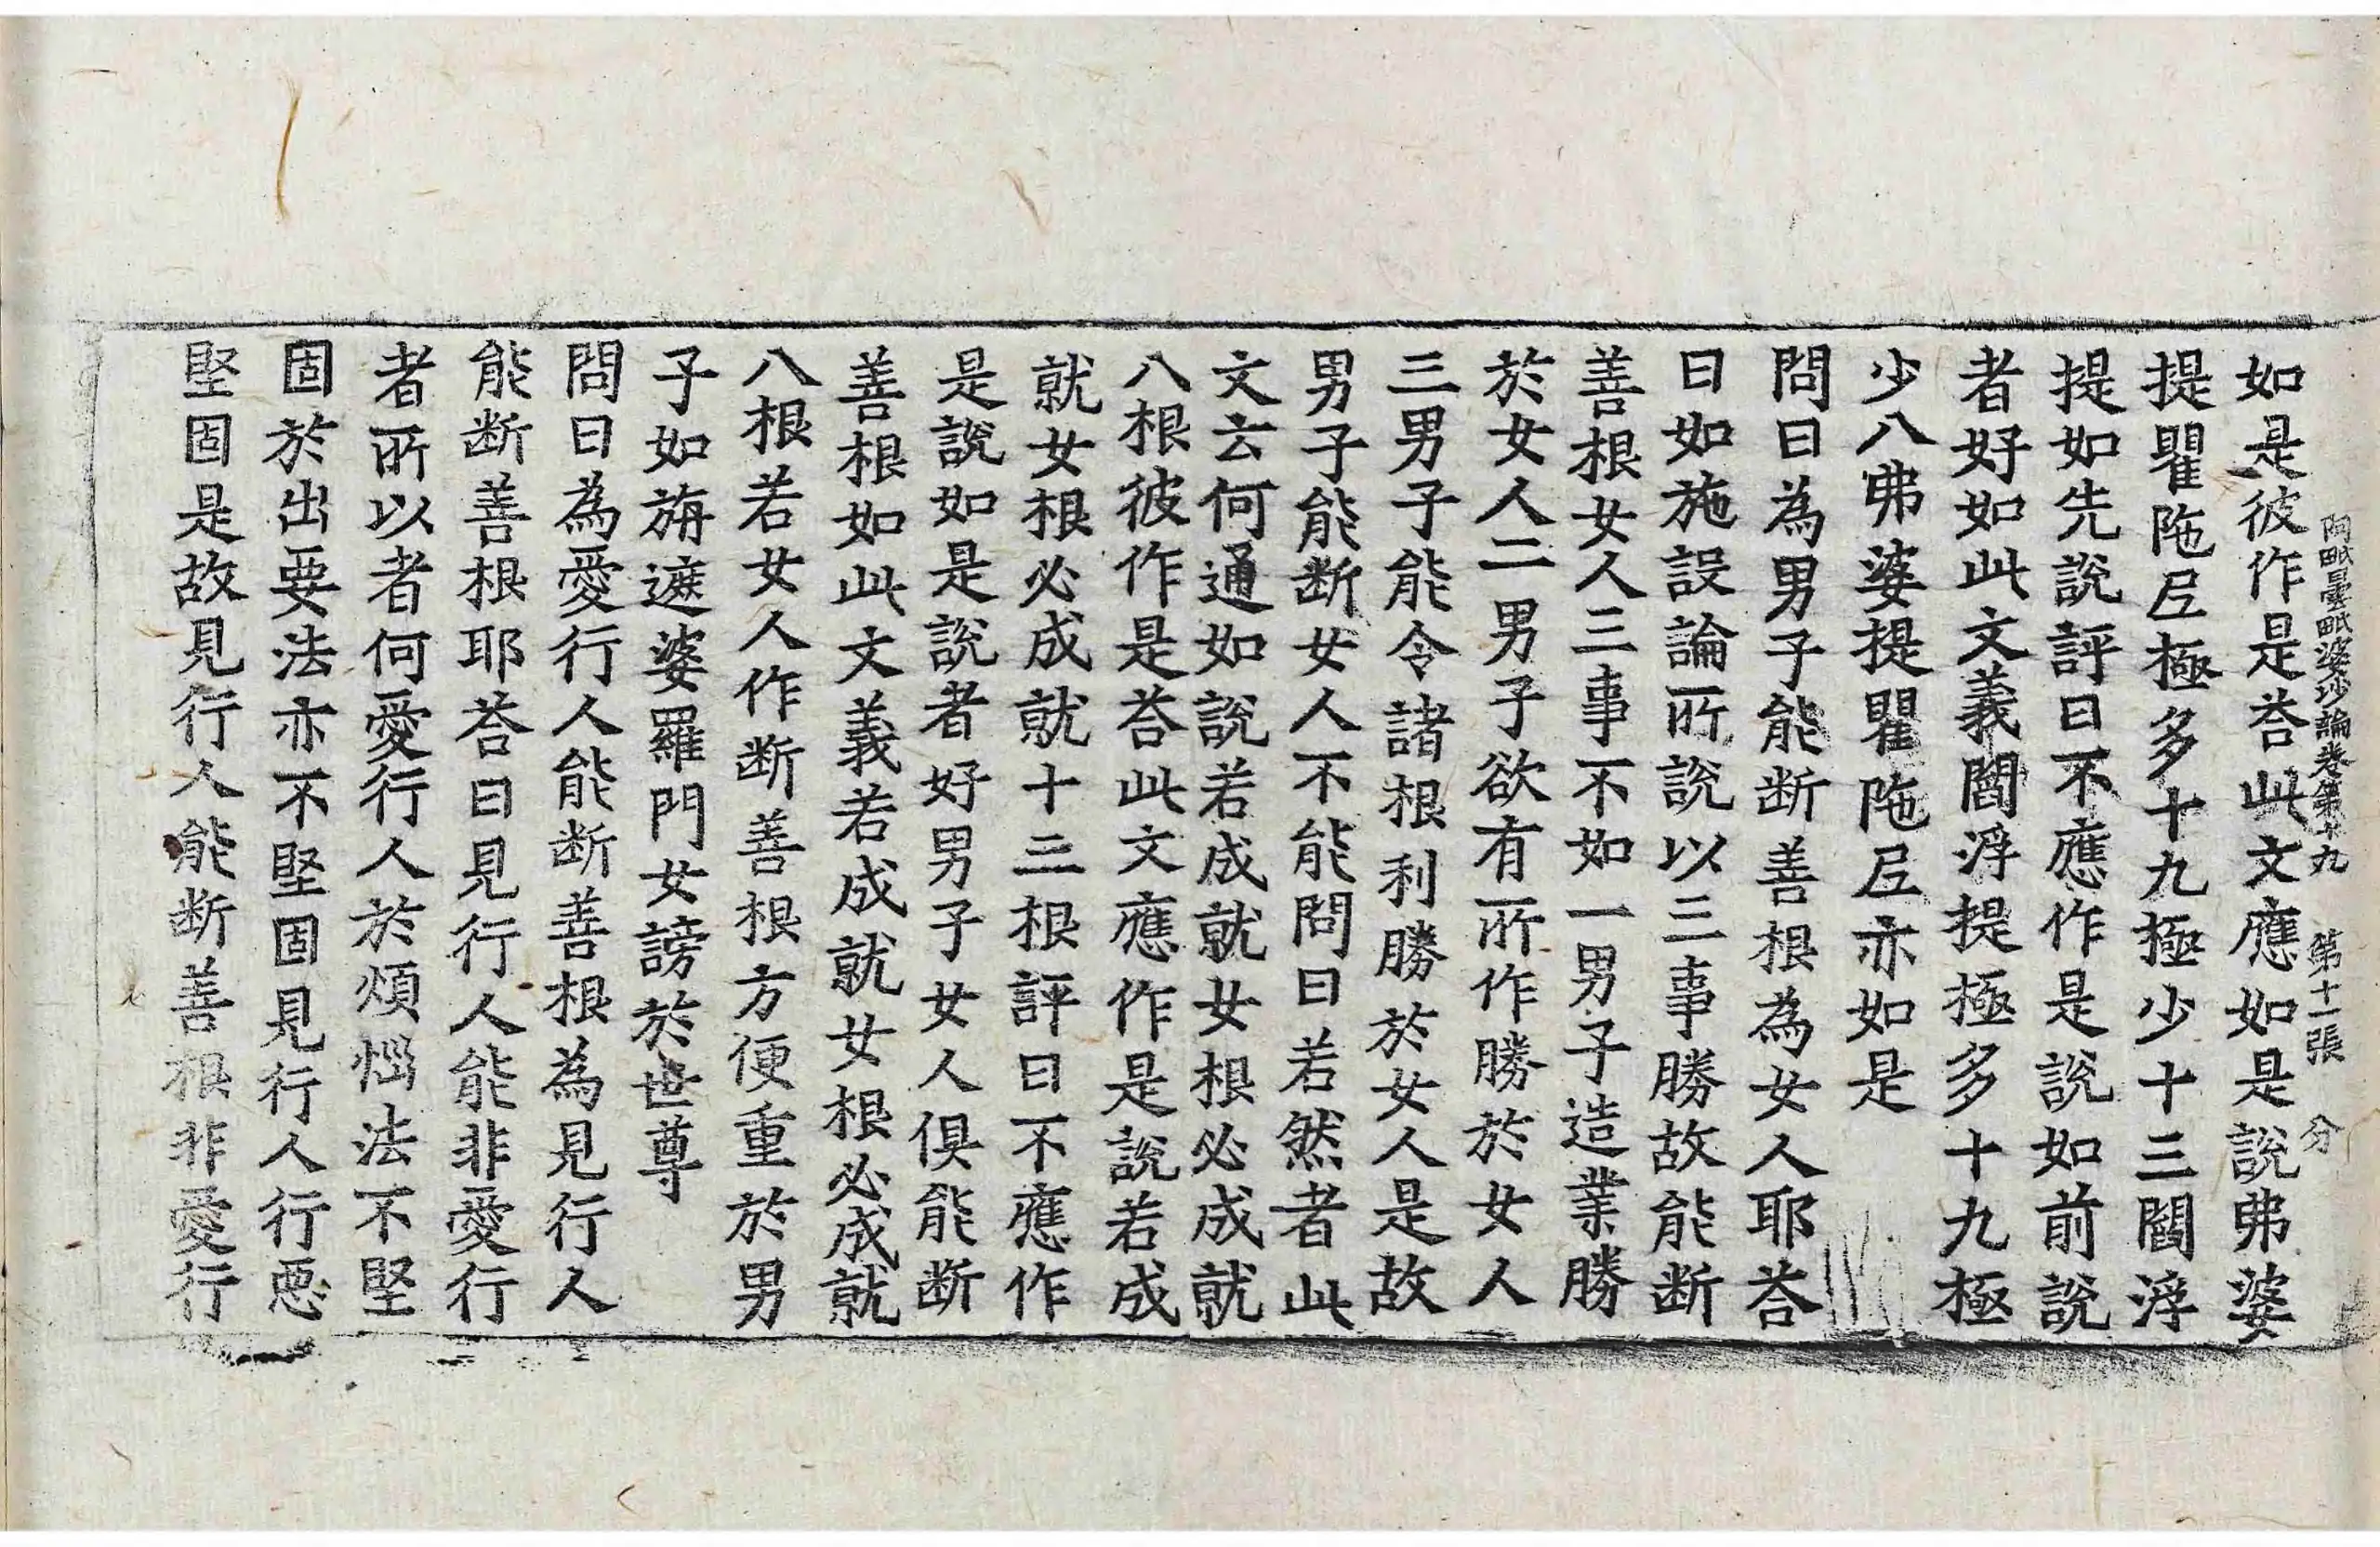 阿毗曇毗婆沙論卷第十九　第十一張　分
如是彼作是荅此文應如是說弗婆
提瞿陁𡰱極多十九極少十三閻浮
提如先說評曰不應作是說如前說
者好如此文義閻浮提極多十九極
少八弗婆提瞿陁𡰱亦如是
問曰為男子能断善根為女人耶荅
曰如施設論所說以三事勝故能断
善根女人三事不如一男子造業勝
於女人二男子欲有所作勝於女人
三男子能令諸根利勝於女人是故
男子能断女人不能問曰若然者此
文云何通如說若成就女根必成就
八根彼作是荅此文應作是說若成
就女根必成就十三根評曰不應作
是說如是說者好男子女人俱能断
善根如此文義若成就女根必成就
八根若女人作断善根方便重於男
子如旃遮婆羅門女謗於世尊
問曰為愛行人能断善根為見行人
能断善根耶荅曰見行人能非愛行
者所以者何愛行人於煩惱法不堅
固於出要法亦不堅固見行人行惡
堅固是故見行人能断善根非愛行